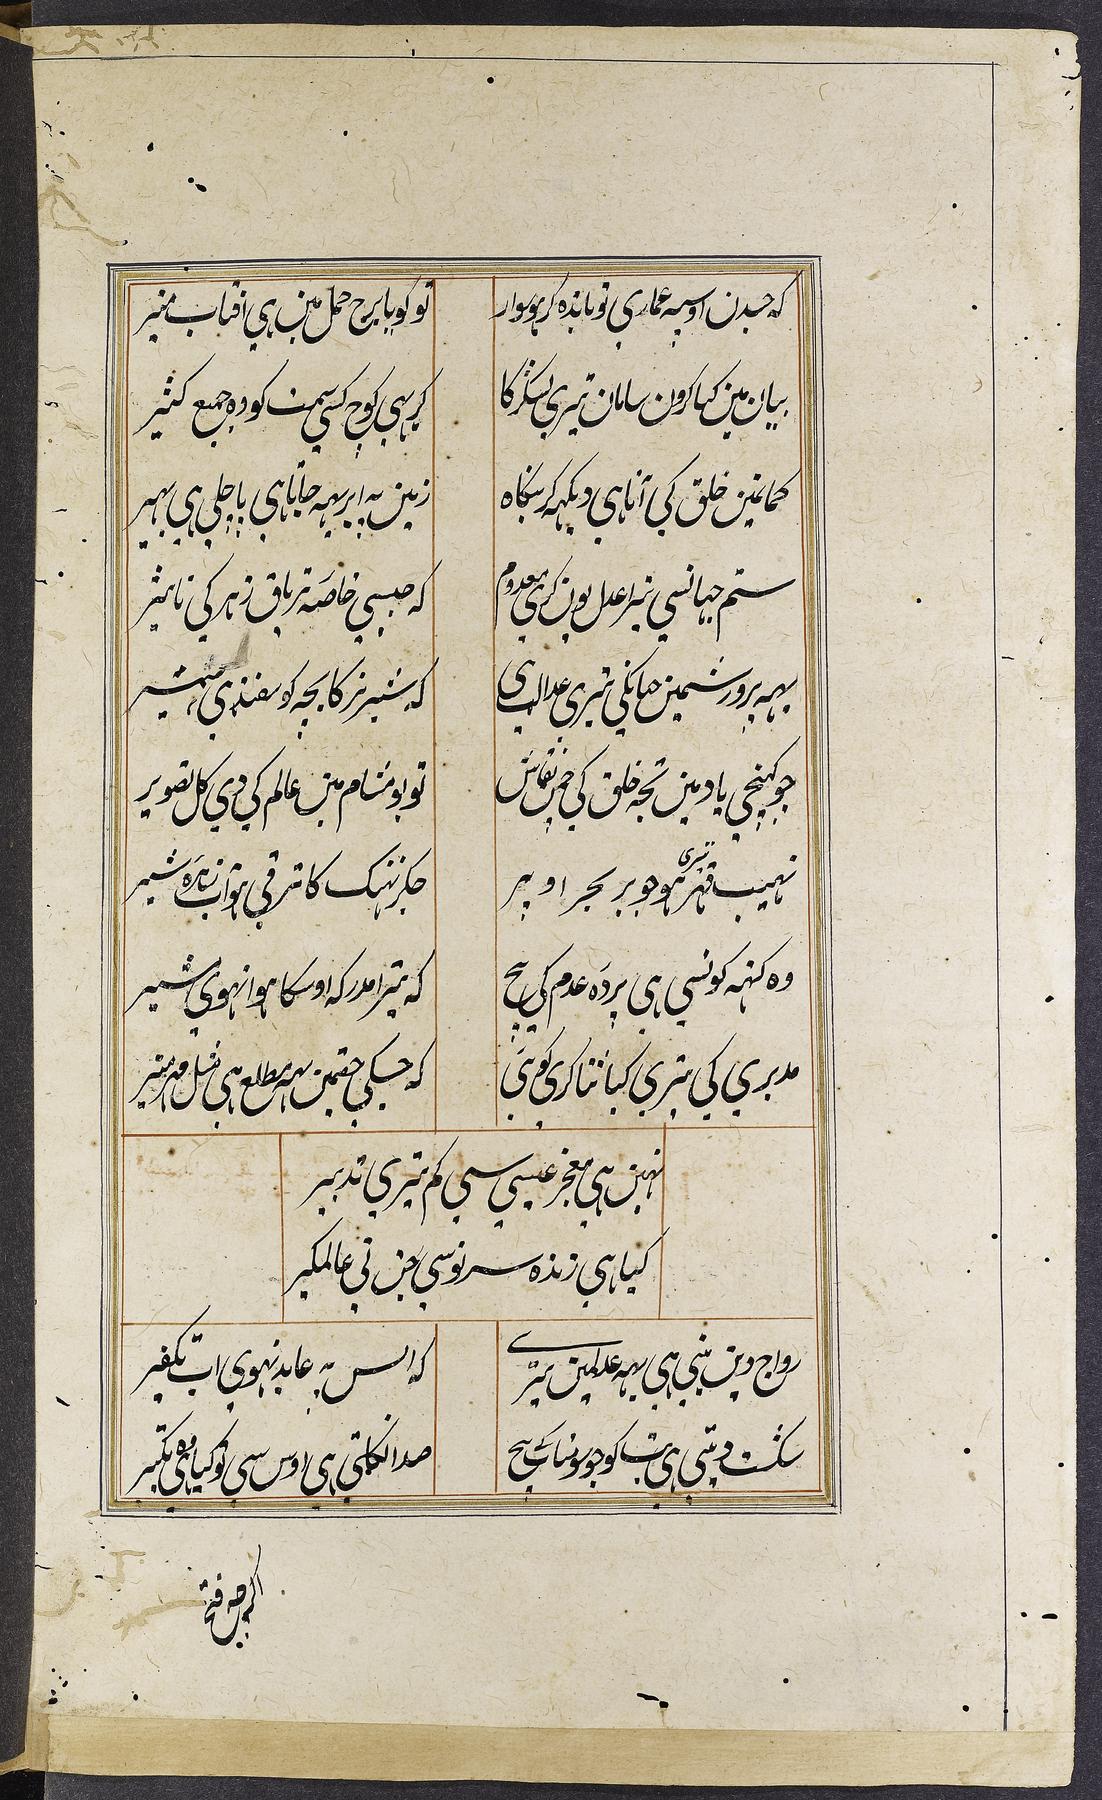 که جسدن اوسپه عماری تو بانده کر هو سوار
تو کویا برج حمل مین هی افتاب منیر
بیان مین کیا کرون سامان تیری لشکر کا
کرهی کوچ کسی سمت کو وه جمع کثیر
کمانمین خلق کی آتا هی دیکهه کر سکاه
زمین په ابر یهه جاتا هی یا چلی هی بهیر
ستم جهانسی تیرا عدل یون کری معدوم
که جیسی خاصه تریاق زهر کی تاثیر
یهه پرورشمین جهانکی تیری عدالت هی
که شیر نر کا بچه کوسفند هی
جو کهنچی یاد مین تجه خلق کی چمن نقاش
تو بو مشام مین عالم کی دی کل تصویر
نهیب قهر تیری هو جو بر بحر اوپر
جکر نهنک کا ترقی هو آب زهره شیر
وه کنهه کونسی هی پرده عدم کی بیچ
که تیرا مدرکه اوسکا هوا نهوی مشیر
مدبری کی تیری کیا ثنا کری کوئی
که جسکی حقمین یهه مطلع هی مثل مهر منیر
نهین هی معجز عیسی سی کم تیری تدبیر
کیا هی زنده سر نو سی جن نی عالمکیر
رواج دین نبی هی یهه عهدمین تیری
که انس په عابد نهوی اب تکفیر
شکست دیتی هی بت کو جو سومنات کی بیچ
صدا نکلتی هی اوس سی تو کیا وه هی تکبیر
اکرچه فتح